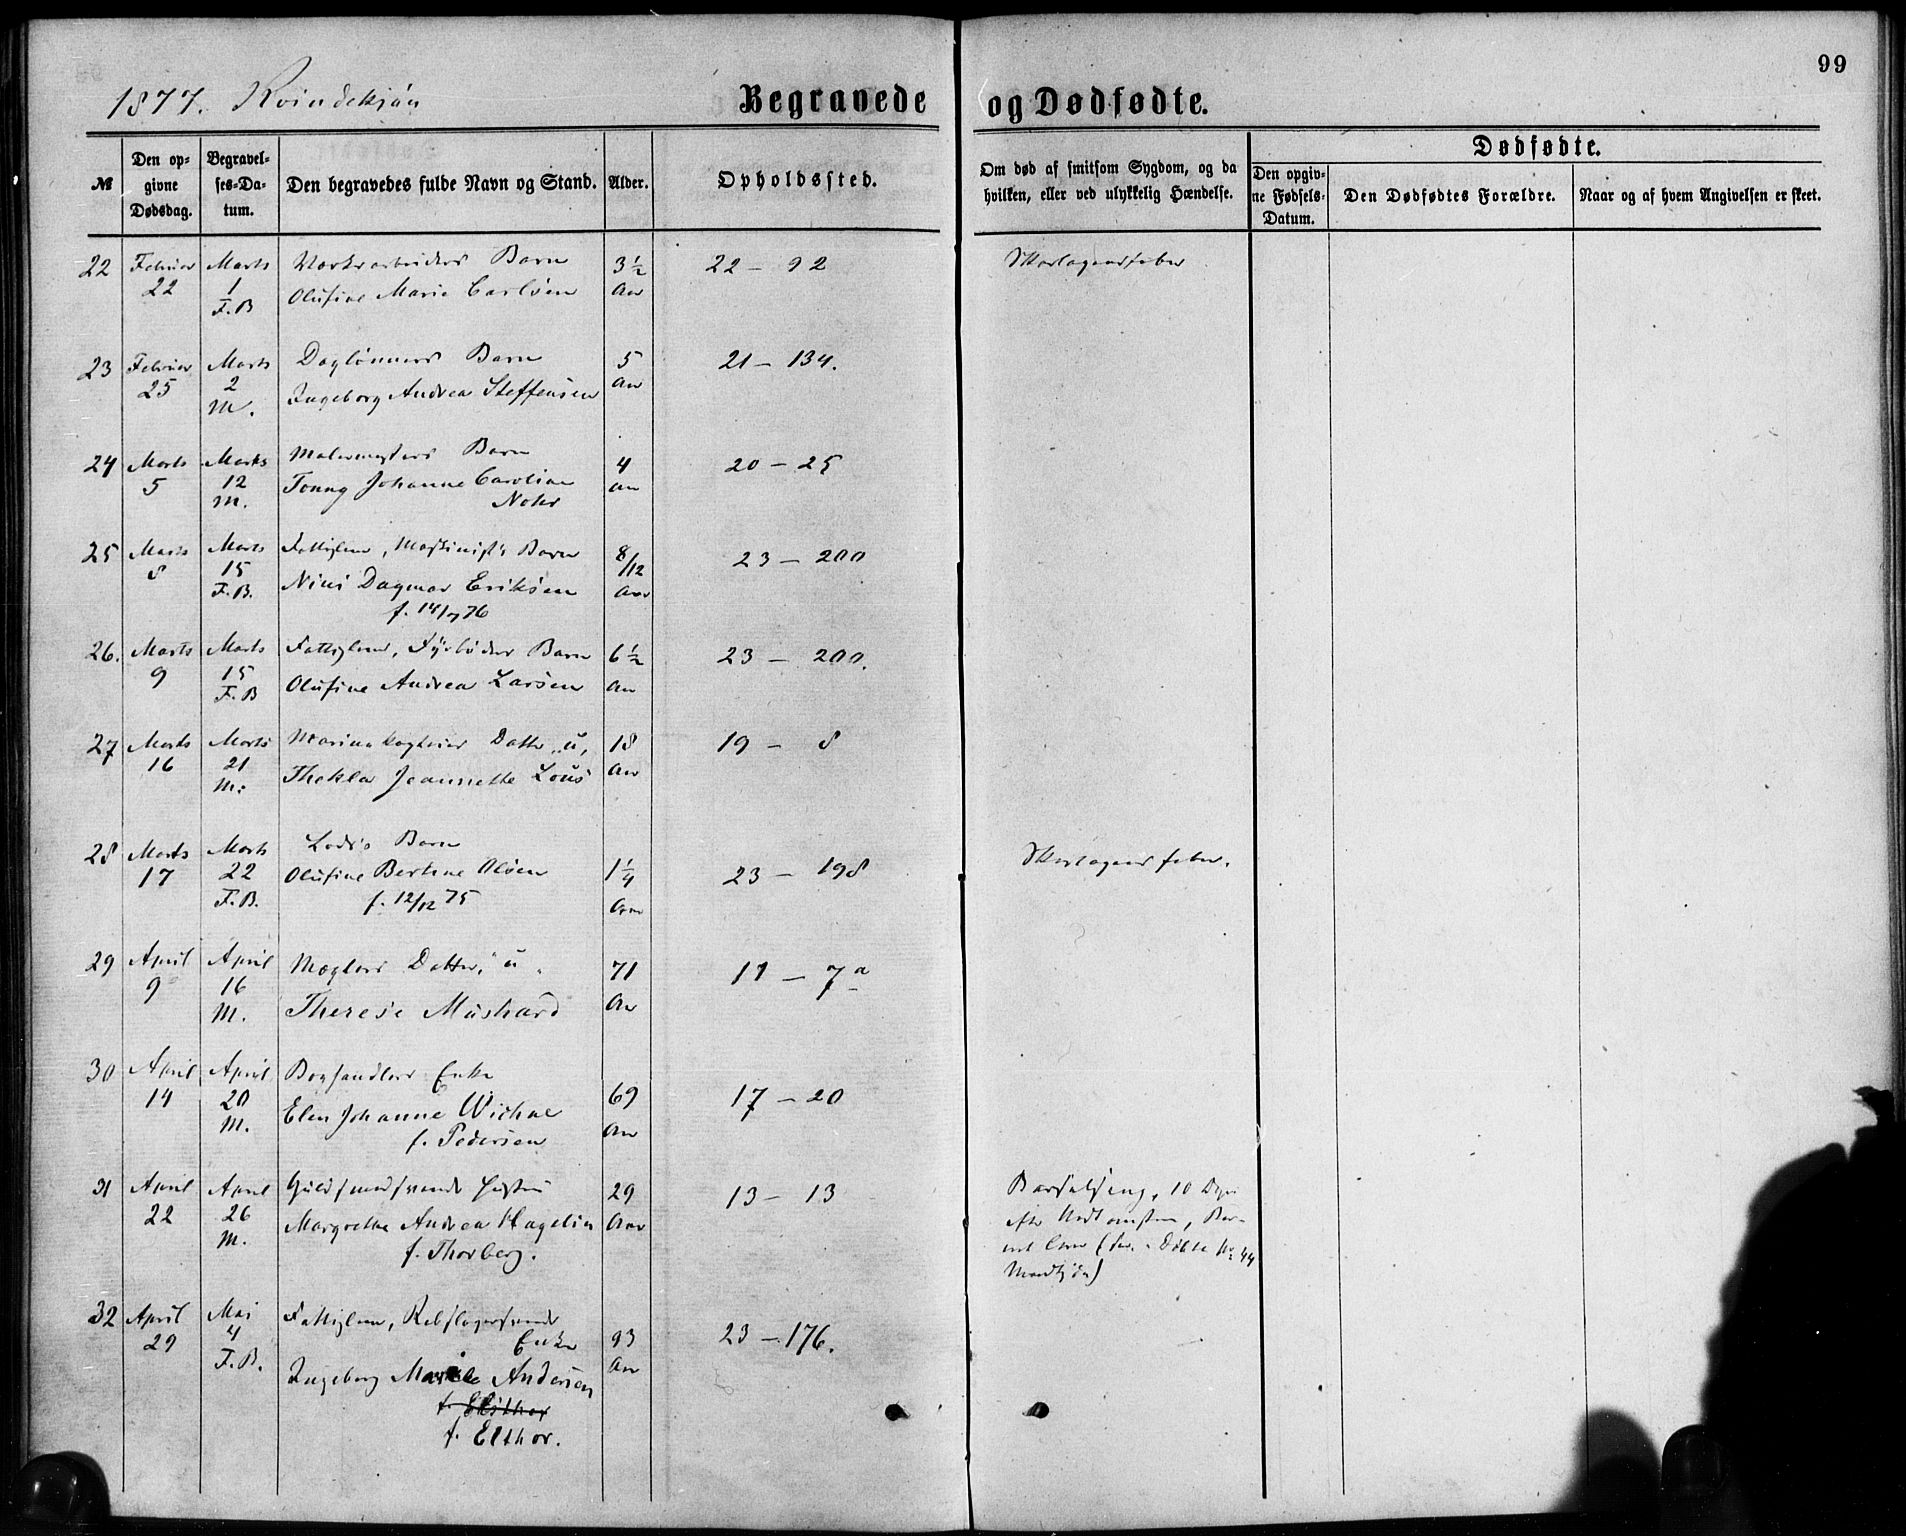 99
1877. Kvindekjön
Begravede og Dødfødte.
№
Den op-
givne
Dødsdag.
Begravel-
ses-Da-
tum.
Den begravedes fulde Navn og Stand.
Alder.
Opholdssted.
Om død af smitsom Sygdom, og da
hvilken, eller ved ulykkelig Hændelse.
Dødfødte.
Den opgiv-
ne Fødsels-
Datum.
Den Dødfødtes Forældre.
Naar og af hvem Angivelsen er skeet.
22 Februar Marts Værksarbeiders Barn 3½ 22 - 92 Skarlagensfeber
22 1 Olufine Marie Carlsen Aar
F.B
23 Februar Marts Daglönners Barn 5 21 - 134.
25 2 Ingeborg Andrea Steffensen Aar
M.
24 Marts Marts Malermesters Barn 4 20 - 25
5 12 Tonny Johanne Caroline Aar
M. Nohr
25 Marts Marts Fattiglem, Maskinist's Barn 8/12 23 - 200
8 15 Nini Dagmar Eriksen Aar
F.B. f. 14/7 76
26. Marts Marts Fattiglem, Fyrböder Barn 6½ 23 - 200.
9 15 Olufine Andrea Larsen Aar
F.B
27 Marts Marts Marinekapteins Datter, u, 18 19 - 8
16 21 Thekla Jeannette Lous Aar
M.
28 Marts Marts Lods's Barn 1¼ 23 - 198 Skarlagensfeber.
17 22 Olufine Bertine Olsen Aar
F.B. f. 12/12 75
29 April April Mæglers Datter, u. 71 11 - 7a
9 16 Therese Mushard Aar
M.
30 April April Boghandlers Enke 69 17 - 20
14 20 Elen Johanne Wichne Aar
M. f. Pedersen
31 April April Guldsmedsvends Hustru 29 13 - 13 Barselseng, 10 Dage
22 26 Margrethe Andrea Hagelin Aar efter Nedkomsten, Bar-
M. f. Thorberg. net lever (see Döbte No 44
Mandkjön)
32 April Mai Fattiglem, Rebslagersvends 93 23 - 176.
29 4 Enke Aar
F.B. Ingeborg Marie Andersen
f. Elsthor
f. Elthor.